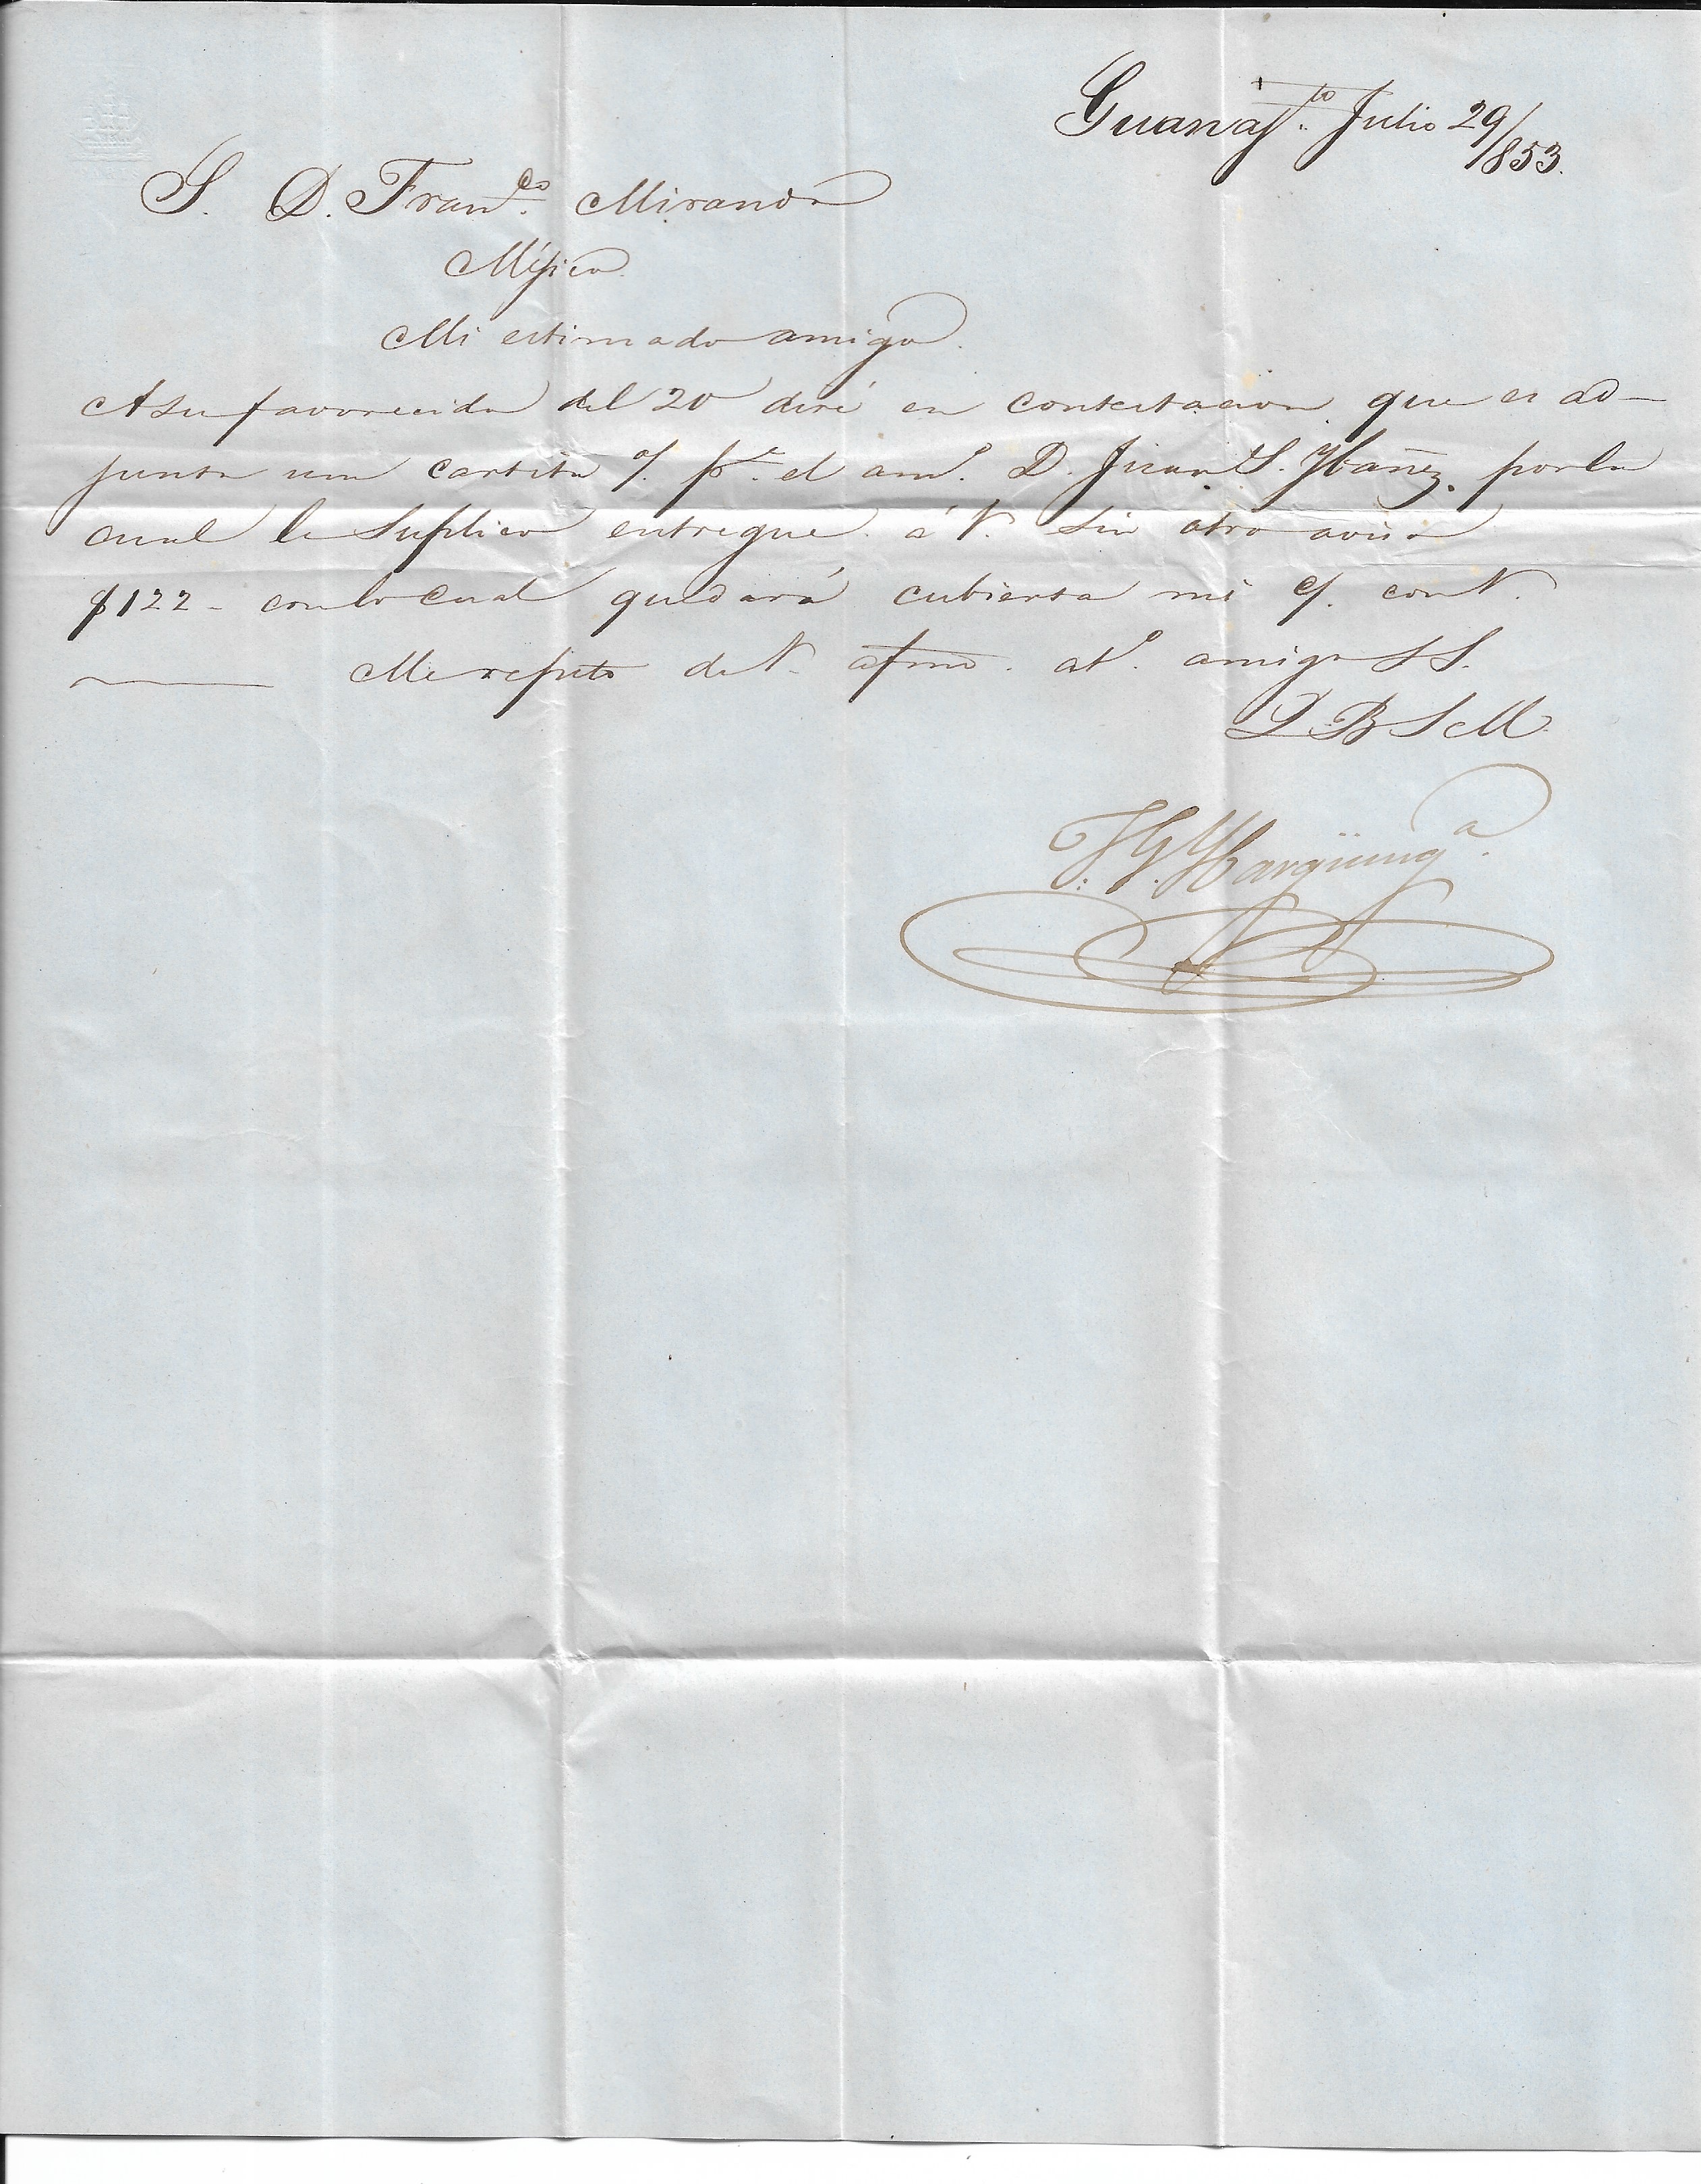 Guanajto. Julio 29/853.
S. D. Franco. Miranda
Méjico.
Mi estimado amigo.
A su favorecida del 20 diré en contestacion que es ad-
junta una cartita %. pa. el amo. D. Juan S. Ybañez. por la
cual le suplico entregue á V. sin otro aviso
$122 - con lo cual quedará cubierta mi c/. con V.
Me repito de V. afmo. ato. amigo S S.
Q B S M